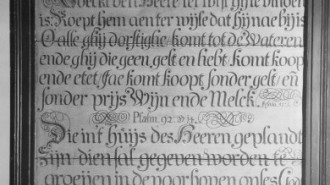 Soeckt den Heere ter wijl hij te vinden
is: Roept hem aen ter wijle dat hij nae bij is
O alle ghij dorstighe komt tot de Wateren
ende ghij die geen gelt en hebt komt koop
ende etet, Jae komt koopt sonder gelt/en
sonder prijs Wijn ende Melck.
Psalm. 92: 14
Die int huijs des Heeren geplandt
zijn dien sal gegeven worden te
groeijen in de voorhoven onses Go